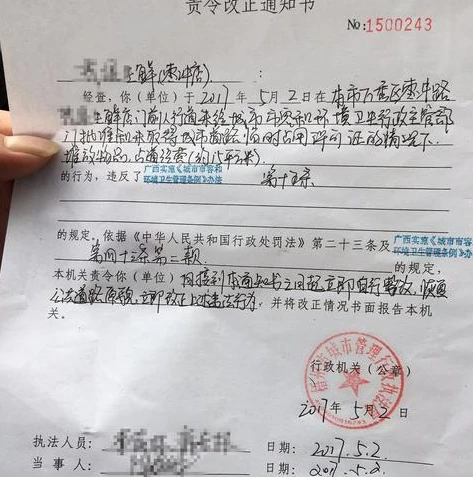 责令改正通知书
No:1500243
生鲜(枣冲店) :
经查，你（单位）于2017年5月2日在本市万秀区枣冲路
生鲜店门前人行道未经城市市容和环境卫生行政主管部
门批准和未取得城市道路临时占用许可证的情况下
堆放物品、占道经营(约15平方米)
的行为，违反了 广西实施《城市市容和环境卫生管理条例》办法 第十五条
的规定，依据《中华人民共和国行政处罚法》第二十三条及 广西实施《城市市容环境卫生管理条例》办法
第四十三条第二款 的规定，
本机关责令你（单位）自接到本通知书之日起立即自行整改，恢复
公共道路原貌，立即改正上述违法行为，并将改正情况书面报告本机
关。
行政机关（公章）
2017年5月2日
执法人员： 日期：2017.5.2
当事人： 日期：2017.5.2